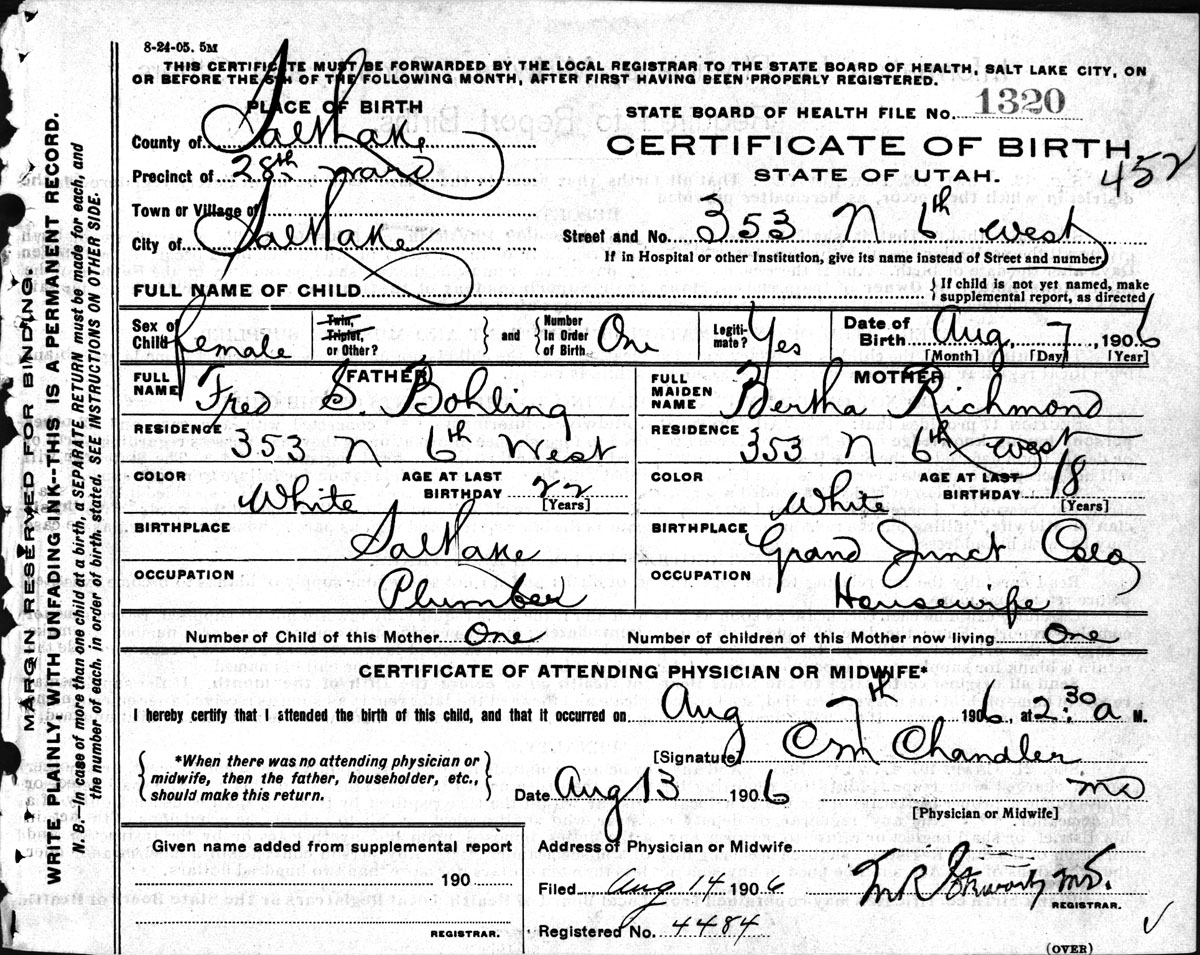 8-24-05. 5M
THIS CERTIFICATE MUST BE FORWARDED BY THE LOCAL REGISTRAR TO THE STATE BOARD OF HEALTH, SALT LAKE CITY, ON
OR BEFORE THE 5TH OF THE FOLLOWING MONTH, AFTER FIRST HAVING BEEN PROPERLY REGISTERED.
PLACE OF BIRTH
STATE BOARD OF HEALTH FILE No. 1320
County of Salt Lake
CERTIFICATE OF BIRTH
452
Precinct of 28th ward
STATE OF UTAH.
Town or Village of
City of Salt Lake
Street and No. 353 N 6th West
If in Hospital or other Institution, give its name instead of Street and number.
FULL NAME OF CHILD
{ If child is not yet named, make supplemental report, as directed
Sex of Child female
Twin, Triplet, or Other? } and { Number In Order of Birth One
Legitimate? Yes
Date of Birth Aug, 7, 1906
[Month] [Day] [Year]
FATHER
FULL NAME Fred S. Bohling
RESIDENCE 353 N 6th West
COLOR White AGE AT LAST BIRTHDAY 22 [Years]
BIRTHPLACE Salt Lake
OCCUPATION Plumber
MOTHER
FULL MAIDEN NAME Bertha Richmond
RESIDENCE 353 N 6th West
COLOR White AGE AT LAST BIRTHDAY 18 [Years]
BIRTHPLACE Grand Junct Colo
OCCUPATION Housewife
Number of Child of this Mother One Number of children of this Mother now living One
CERTIFICATE OF ATTENDING PHYSICIAN OR MIDWIFE*
I hereby certify that I attended the birth of this child, and that it occurred on Aug 7th 1906, at 2:30 a M.
[Signature] CM Chandler
*When there was no attending physician or
midwife, then the father, householder, etc.,
should make this return.
Date Aug 13 1906 MD
[Physician or Midwife]
Given name added from supplemental report
190
REGISTRAR.
Address of Physician or Midwife
Filed Aug 14 1906 M.D.
REGISTRAR.
Registered No. 4484
(OVER)
MARGIN RESERVED FOR BINDING.
WRITE PLAINLY WITH UNFADING INK--THIS IS A PERMANENT RECORD.
N. B.—In case of more than one child at a birth, a SEPARATE RETURN must be made for each, and
the number of each, in order of birth, stated. SEE INSTRUCTIONS ON OTHER SIDE.